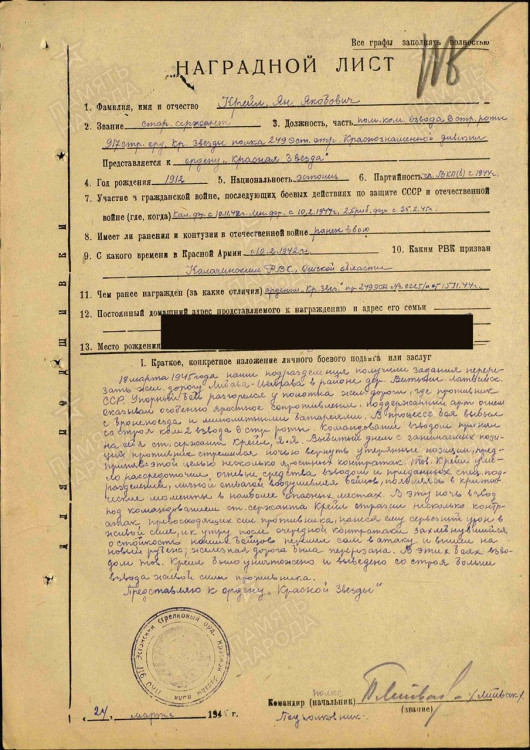 Все графы заполнять полностью
НАГРАДНОЙ ЛИСТ
1. Фамилия, имя и отчество Крейл, Ян Якобович
2. Звание стар. сержант 3. Должность, часть пом. ком. взвода 8 стр. роты
917 стр. орд. Кр. Звезды полка 249 Эст. стр. Краснознаменной дивизии
Представляется к ордену „Красная Звезда"
4. Год рождения 1912 5. Национальность эстонец 6. Партийность ВКП(б) с 1944
7. Участие в гражданской войне, последующих боевых действиях по защите СССР и отечественной
войне (где, когда)
8. Имеет ли ранения и контузии в отечественной войне
9. С какого времени в Красной Армии 10. Каким РВК призван
Калачинским РВК, Омской области
11. Чем ранее награжден (за какие отличия) орденом „Кр. Звезды"
12. Постоянный домашний адрес представляемого к награждению и адрес его семьи
13. Место рождения
I. Краткое, конкретное изложение личного боевого подвига или заслуг
18 марта 1945 года наши подразделения получили задание перере-
зать жел. дорогу Либава-Митава в районе дер. Латвийск.
ССР. Упорный бой разгорелся у полотна жел. дороги, где противник
оказывал особенно яростное сопротивление, поддержанный арт. огнем
с бронепоезда и минометными батареями. В процессе боя выбыл
из строя ком. 2 взвода 8 стр. роты. Командование взводом принял
на себя ст. сержант Крейл, Я.Я. Выбитый днем с занимаемых пози-
ций противник стремился ночью вернуть утерянные позиции, пред-
приняв с этой целью несколько яростных контратак. Тов. Крейл уме-
ло насредоточил огневые средства взвода и приданных спец. под-
разделений, личной отвагой воодушевляя бойцов, появляясь в крити-
ческие моменты в наиболее опасных местах. В эту ночь взвод
под командованием ст. сержанта Крейл отразил несколько контр-
атак, превосходящих сил противника, нанеся ему серьезный урон в
живой силе, и к утру после очередной контратаки захлебнувшейся
о стойкость наших бойцов перешел сам в атаку и вышел на
новый рубеж; железная дорога была перерезана. В этих боях взво-
дом тов. Крейл было уничтожено и выведено со строя больше
взвода живой силы противника.
Представляю к ордену „Красной Звезды"
полка
Командир (начальник) (Литвак)
(звание)
Подполковник
„24" марта 1945 г.
ПАМЯТЬ НАРОДА